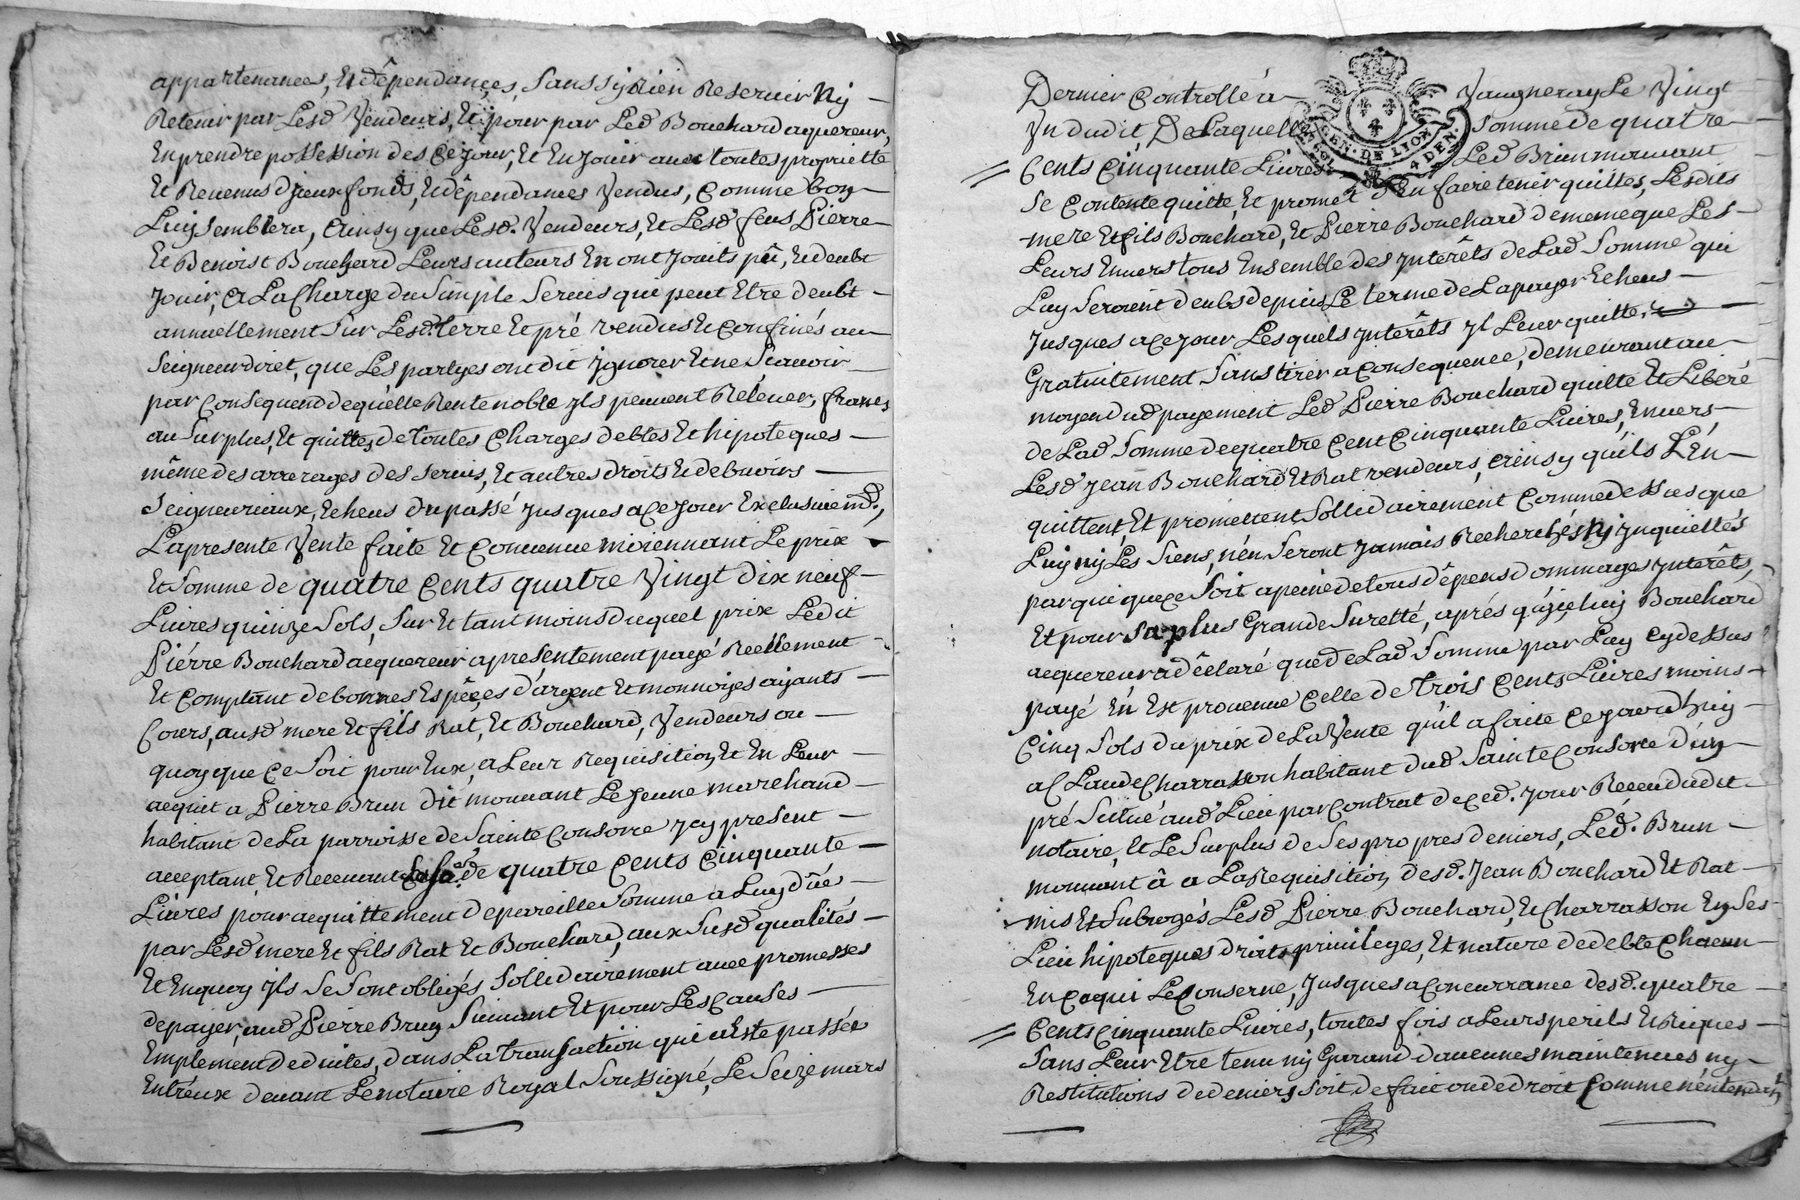 appartenances, Et dêpendançes, Sans sy Rien Reseruir Ny
Retenir par Lesd Vendeurs, Et pour par Led Bouchard aquereur,
En prendre possession des Ce jour, Et En jouir auec toutes proprietté
Et Reuenus d'yceux fonds, Et dêpendances Vendus, Comme bon
Luy Semblera, Ainsy que Lesd. Vendeurs, Et Lesd feus Pierre
Et Benoist Bouchard Leurs auteurs En ont Jouits pû, Et deubt
Jouir, A La Charge du Simple Seruis qui peut Etre deubt
annuellement Sur Lesd. Terre Et pré vendus Et Confinés au
Seigneur diret, que Les partyes ont dit Ignorer Et ne Scauoir
par Consequend de quélle Rente noble Ils peuuent Réleuer, francs
au Surplus, Et quittes de toutes Charges debtes Et hipoteques
même des arrerages des Seruis, Et autres droits Et debuoirs
Seigneuriaux, Echeus du passé Jusques a Ce Jour Exclusiuemd.,
La presente Vente faite Et Conuenue moiennant Le prix
Et Somme de quatre Cents quatre Vingt dix neuf
Liures quinze Sols, Sur Et tant moins duquel prix Ledit
Piérre Bouchard acquereur a presentement payé Reéllement
Et Comptant de bonnes Espêces d'argent Et monnoyes ayants
Cours, ausd mere Et fils Rat, Et Bouchard, Vendeurs ou
quoy que Ce Soit pour Eux, a Leur Requisition Et En Leur
acquit a Pierre Brun dit mouuant Le Jeune marchand
habitant de La parroisse de Sainte Consorce Icy present
acceptant Et Receuant de quatre Cents Cinquante
Liures pour acquittement de pareille Somme a Luy dûe
par Lesd mere Et fils Rat Et Bouchard, aux Susd qualités
Et Enquoy Ils Se Sont obligés Sollidairement auec promesses
de payer, aud Pierre Brun Suiuant Et pour Les Causes
Emplement dedüites, dans La transaction qui a Esté passée
Entréux deuant Le notaire Royal Soussigné, Le Seize mars
Dernier Controllé a Vaugneray Le Vingt
Un dudit, De Laquelle Somme de quatre
GEN. DE LION
4 DEN.
Cents Cinquante Liures Led Brun mouuant
Se Contente quitte, Et promet d'En faire tenir quittes, Lesdits
mere Et fils Bouchard, Et Pierre Bouchard de meme que Les
Leurs Enuers tous Ensemble des Jntérêts de Lad Somme qui
Luy Seroient deubs depuis Le terme de La payer Echeus
Jusques a Ce Jour Lesquels Jntérêts Il Leur quitte
Gratuitement Sans tirer a Consequence, demeurant au
moyen dud payement Led Pierre Bouchard quitte Et Libéré
de Lad Somme de quatre Cent Cinquante Liures, Enuers
Lesd Jean Bouchard Et Rat vendeurs, Ainsy qu'ils L'En
quittent, Et promettent Sollidairement Comme dessus que
Luy ny Les Siens, n'en Seront Jamais Recherchés Ny Jnquiéttés
par qui que Ce Soit a peine de tous dêpens dommages Jntérêts,
Et pour Sa plus Grande Suretté, aprés qu'jcelluy Bouchard
acquereur a déclaré que de Lad Somme par Luy Cy dessus
payé En Est prouenue Celle de trois Cents Liures moins
Cinq Sols du prix de La Vente qu'il a faite Ce Jourd'huy
a Claude Charrasson habitant dud Sainte Consorce d'un
pré Scitué aud Lieu par Contrat de Ced. Jour Receu dudit
notaire, Et Le Surplus de Ses propres deniers, Led. Brun
mouuant â a La Requisition desd. Jean Bouchard Et Rat
mis Et Subrogés Lesd Pierre Bouchard, Et Charrasson En Ses
Lieu hipoteques droits priuileges, Et nature de debte Chacun
En Ce qui Le Conserne, Jusques a Concurrance desd. quatre
Cents Cinquante Liures, toutes fois a Leurs perils Et Risques
Sans Leur Etre tenu ny Garand d'aucunes maintenues ny
Restitutions de deniers Soit de fait ou de droit Comme n'entendant